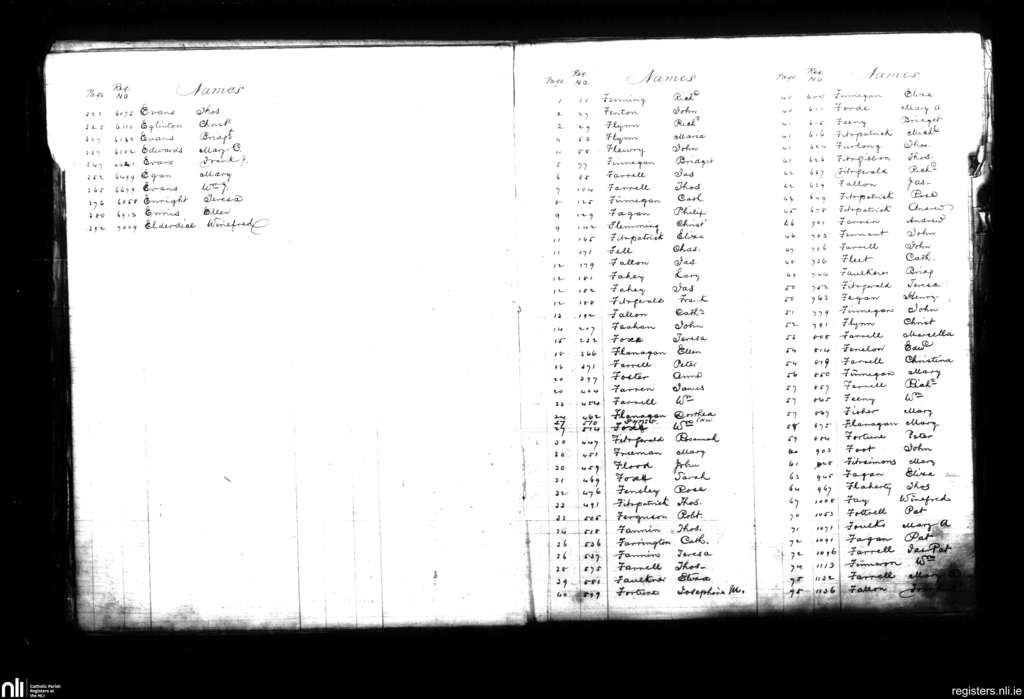 Page Reg. No. Names
6075 Evans Thos
6110 Eglinton Christ
Evans Bridgt
Edwards Mary C.
Evans Frank J.
6499 Egan Mary
265 6679 Evans Wm J.
276 6858 Enright Teresa
280 6913 Ennis Ellen
292 7029 Elderdice Winefred
Page Reg. No. Names
1 11 Fenning Richd
2 27 Fenton John
2 29 Flynn Richd
4 50 Flynn Maria
Fleury John
5 77 Finnegan Bridget
6 88 Farrell Jas
7 104 Farrell Thos
8 125 Finnegan Cath.
9 129 Fagan Philip
9 142 Flemming Christ
11 165 Fitzpatrick Eliza
11 171 Fell Chas.
12 179 Fallon Jas.
12 181 Fahey Lacy
12 182 Fahey Jas
12 188 Fitzgerald Frank
13 192 Fallon Cath
14 207 Feehan John
15 232 Foxe Teresa
18 266 Flanagan Ellen
271 Farrell Peter
20 297 Foster Anne
Farren James
Farrell Wm
24 462 Flanagan Dorthea
27 510
Foxe Wm
30 447 Fitzgerald
30 451 Freeman Mary
30 459 Flood John
31 469 Foxe Sarah
32 476 Fensley Rose
33 491 Fitzpatrick Thos.
33 505 Ferguson Robt.
34 518 Fannin Thos.
36 536 Farrington Cath.
36 537 Fannin Teresa
38 575 Farrell Thos-
39 581 Faulkner Eliza
40 599 Fortune Josephine M.
Page Reg. No. Names
40 600 Finnegan Eliza
41 611 Forde Mary A
41 615 Feeny Bridget
41 616 Fitzpatrick Michl
41 624 Furlong Thos.
41 626 Fitzgibbon Thos.
42 627 Fitzgerald Richd
42 629 Fallon Jas-
43 649 Fitzpatrick Rose
45 678 Fitzpatrick Andrew
46 701 Farren Andrew
46 703 Fennant John
47 706 Farrell John
48 726 Fleet Cath.
49 744 Faulkner Bridg
50 752 Fitzgerald Teresa
50 763 Fegan Henry
51 779 Finnegan John
52 791 Flynn Christ
53 808 Farrell Marcella
54 814 Fenelon Edwd
54 819 Farrell Christina
56 850 Finnegan Mary
57 857 Farrell Richd
57 865 Feeny Wm
57 867 Fisher Mary
58 875 Flanagan Mary
59 884 Fortune Peter
60 903 Foot John
61 Fitzsimons Mary
63 945 Fagan Eliza
64 967 Flaherty Thos
67 1008 Fay Winefred
70 1053 Fottrell Pat
71 1071 Foulks Mary A
72 1091 Fagan Pat
72 1096 Farrell Jas Pat
74 1113 Finneron Wm
75 1132 Farrell Mary
75 1136 Fallon
nli Catholic Parish Registers at the NLI
registers.nli.ie